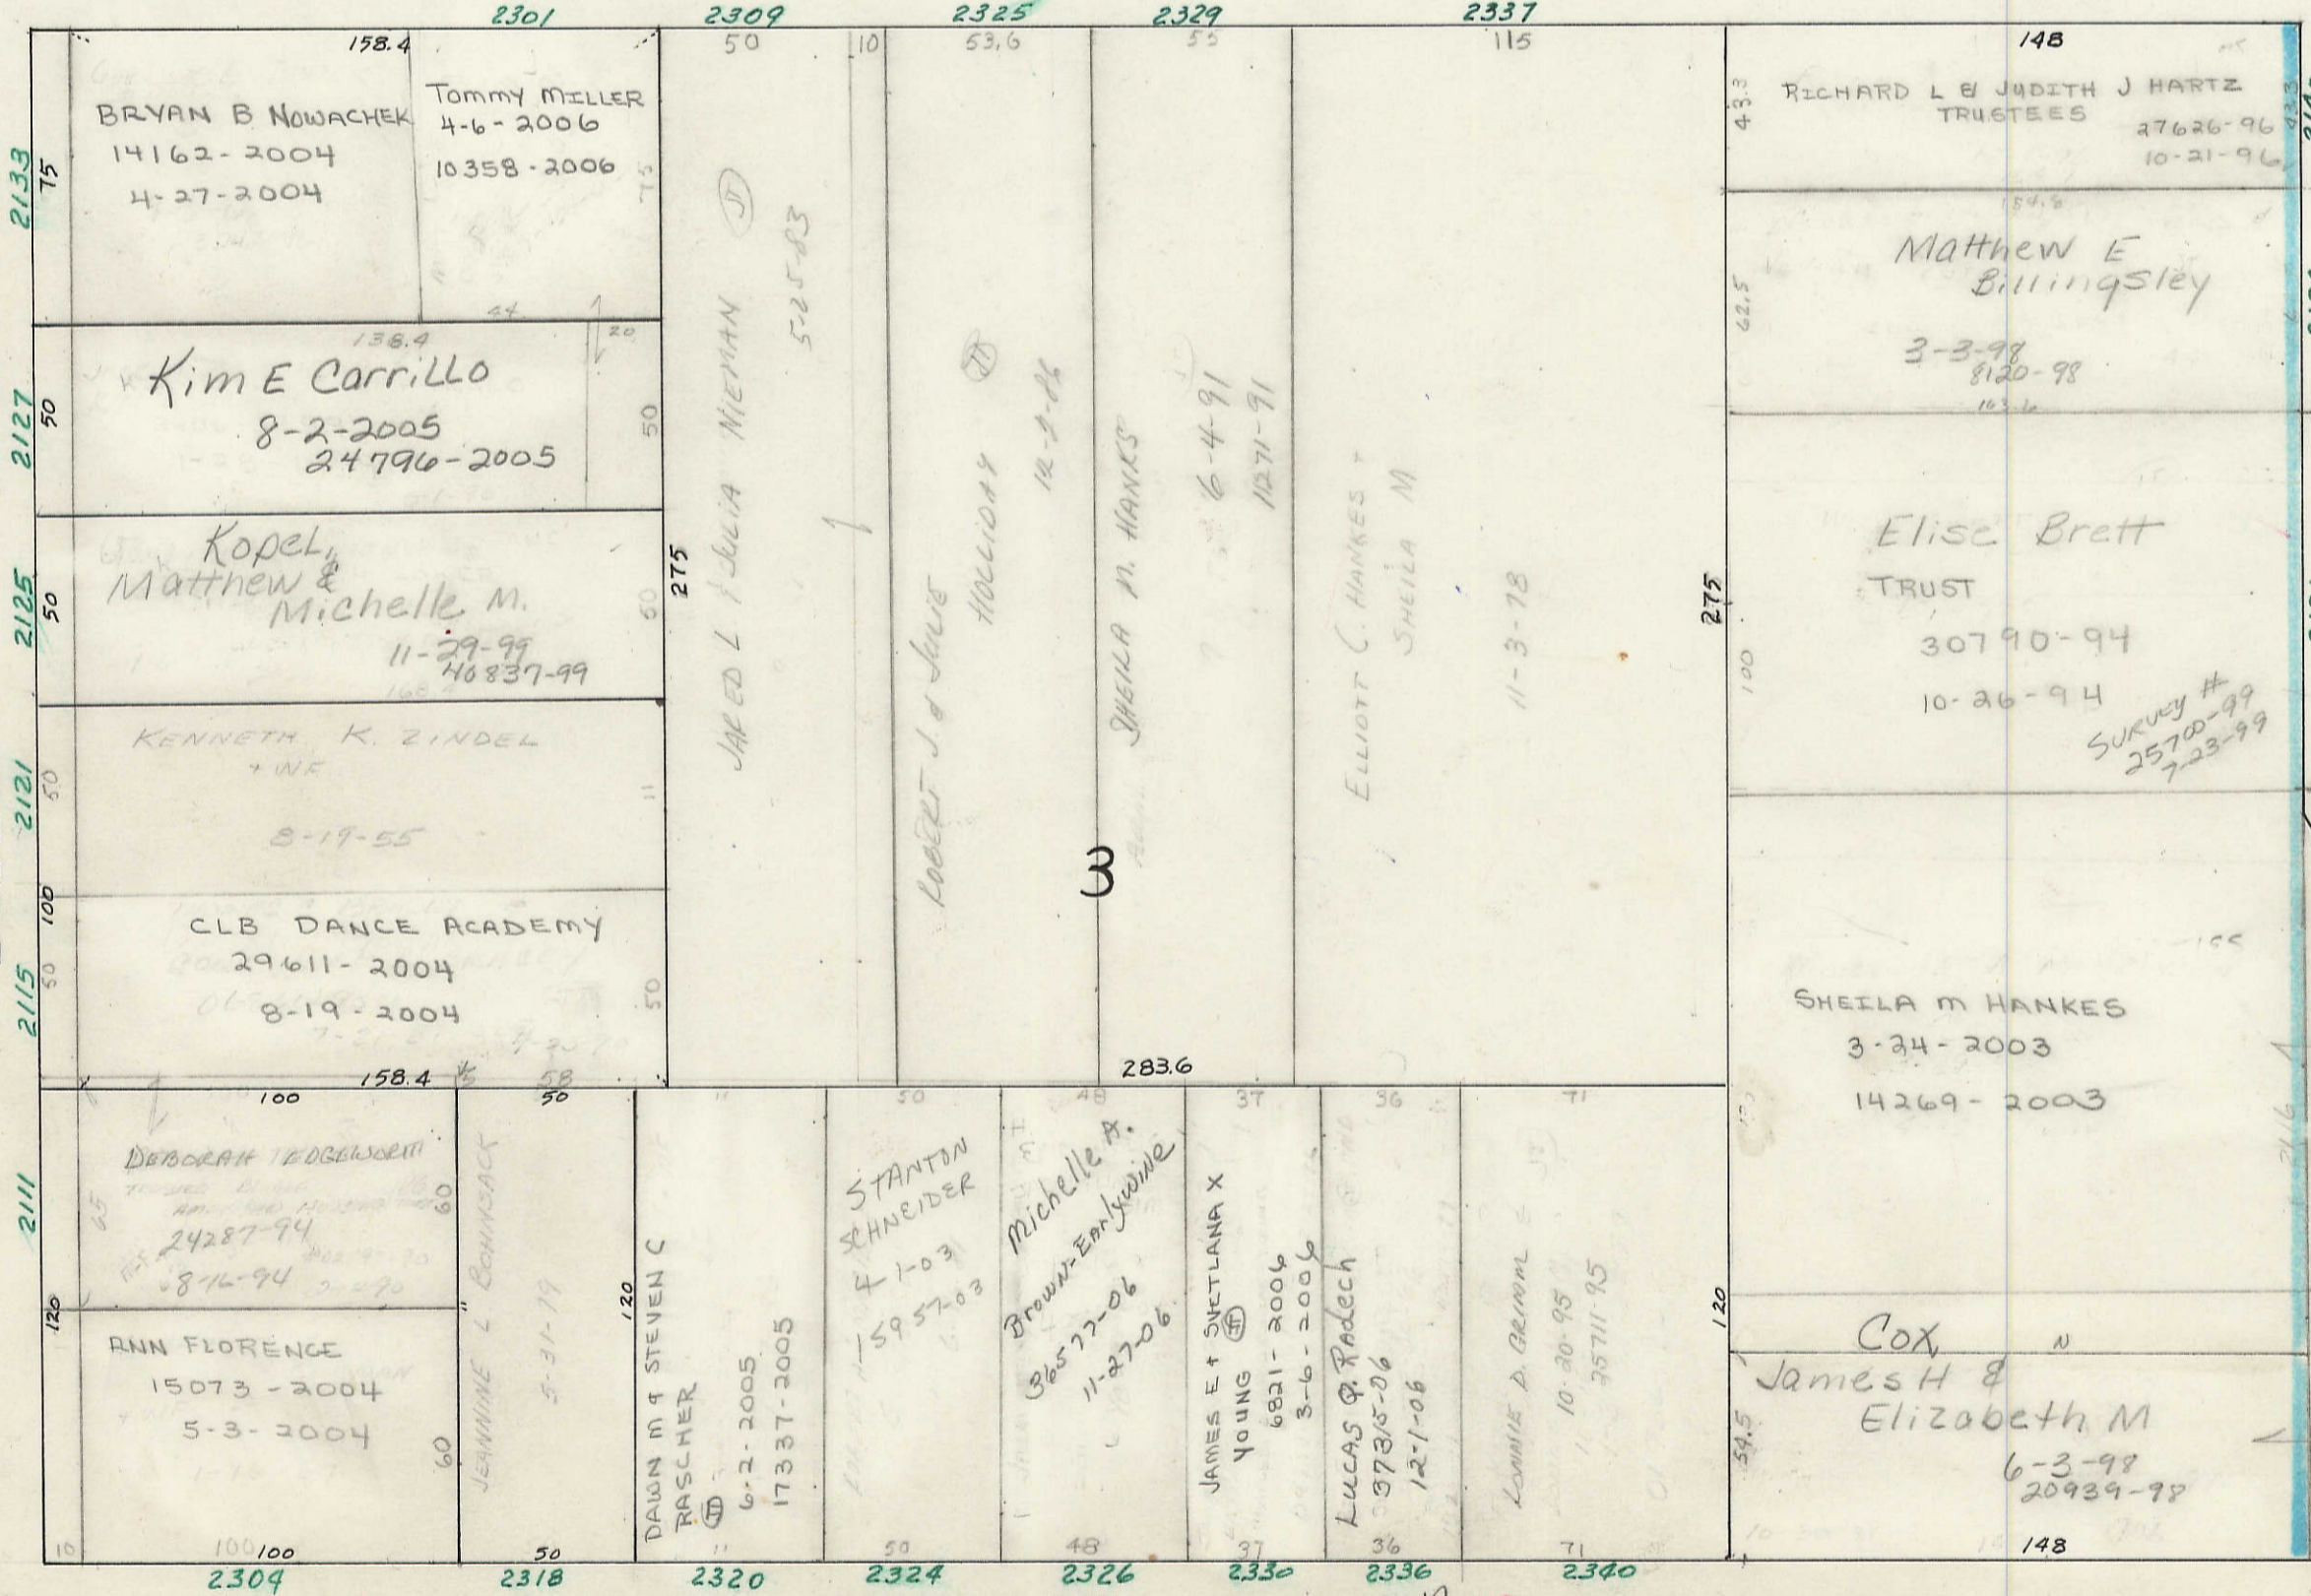 2301
2309
2325
2329
2337
158.4
50
10
53.6
55
115
148
2133
75
BRYAN B NOWACHEK
14162-2004
4-27-2004
Tommy MILLER
4-6-2006
10358-2006
75
44
138.4
20
2127
50
Kim E Carrillo
8-2-2005
24796-2005
50
2125
50
Kopel,
Matthew &
Michelle M.
11-29-99
40837-99
50
2121
50
KENNETH K. ZINDEL
+ WF
8-19-55
11
100
2115
50
CLB DANCE ACADEMY
29611-2004
8-19-2004
50
158.4
58
275
JARED L & JULIA NIEMAN JT
5-25-83
ROBERT J. & JULIE
HOLLIDAY JT
12-2-86
SHEILA M. HANKS
6-4-91
11271-91
3
283.6
ELLIOTT C. HANKES +
SHEILA M
11-3-78
275
43.3
RICHARD L & JUDITH J HARTZ
TRUSTEES
27626-96
10-21-96
43.3
154.8
62.5
Matthew E
Billingsley
3-3-98
8120-98
163.6
100
Elise Brett
TRUST
30790-94
10-26-94
SURVEY #
25700-99
7-23-99
155
SHEILA M HANKES
3-24-2003
14269-2003
2416
120
Cox, N
James H &
Elizabeth M
6-3-98
20939-98
54.5
148
2111
120
100
65
DEBORAH EDGEWORTH
24287-94
8-16-94
60
ANN FLORENCE
15073-2004
5-3-2004
60
10
100
100
50
JEANNINE L BOHNSACK
5-31-79
50
120
11
DAWN M & STEVEN C
RASCHER
JT
6-2-2005
17337-2005
11
50
STANTON
SCHNEIDER
4-1-03
15957-03
50
48
Michelle A.
Brown-Earlywine
36577-06
11-27-06
48
37
JAMES E + SVETLANA X
YOUNG JT
6821-2006
3-6-2006
37
36
LUCAS P. Radech
37315-06
12-1-06
36
71
LONNIE D. GRIMM
10-20-95
25711-95
71
2304
2318
2320
2324
2326
2330
2336
2340